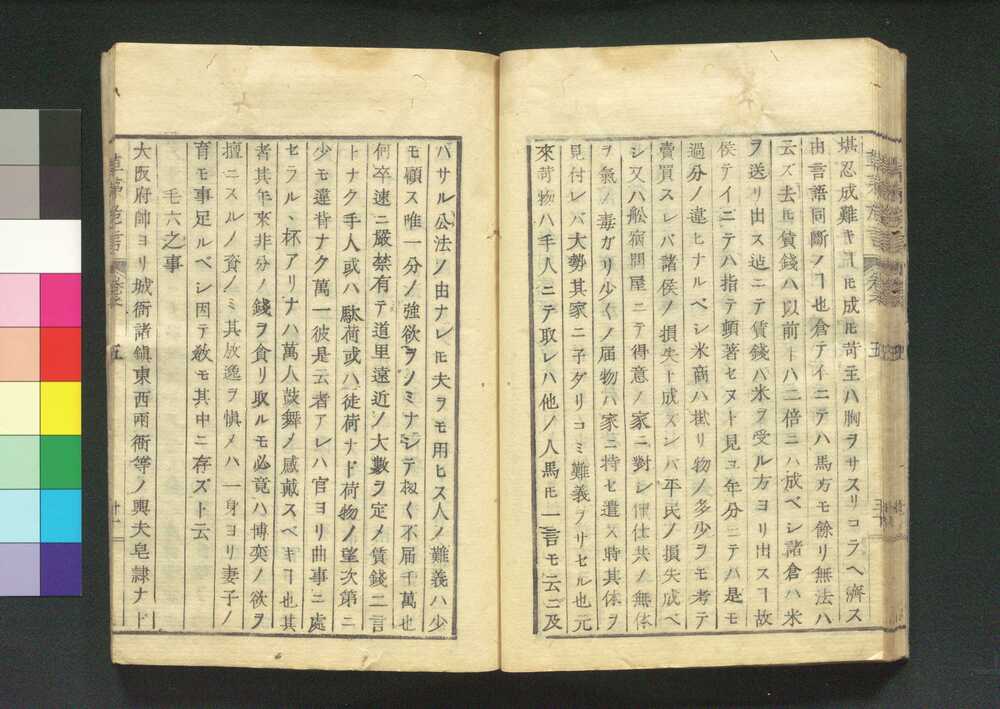 堪忍成難キヿモ成ㇳモ苛主ハ胸ヲサスリコラヘ濟ス
由言語同斷ノヿ也倉テイニテハ馬方モ餘リ無法ハ
云ズ去ㇳモ賃錢ハ以前トハ二倍ニハ成ベシ諸倉ハ米
ヲ送リ出ス迠ニテ賃錢ハ米ヲ受ル方ヨリ出スヿ故
侯テイニテハ指テ頓著セヌト見ユ年分ニテハ是モ
過分ノ違ヒナルベシ米商ハ樾リ物ノ多少ヲモ考テ
賣買スレバ諸侯ノ損失ト成ズンバ平民ノ損失成ベ
シ又ハ舩宿問屋ニテ得意ノ家ニ對シ仲仕共ノ無体
ヲ氣ノ毒ガリ少〱ノ届物ハ家ニ持セ遣ス時其体ヲ
見付レバ大勢其家ニ子ダリコミ難義ヲサセル也元
來苛物ハ手人ニテ取レハ他ノ人馬ㇳモ一言モ云ニ及
バサル公法ノ由ナレㇳモ夫ヲモ用ヒス人ノ難義ハ少
モ顧ス唯一分ノ強欲ヲノミナシテ扨〱不届千萬也
何卒速ニ嚴禁有テ道里遠近ノ大數ヲ定メ賃錢二言
トナク手人或ハ駄荷或ハ徒荷ナド荷物ノ望次第ニ
少モ違背ナク萬一彼是云者アレハ官ヨリ曲事ニ處
セラルヽ杯アリナハ萬人鼓舞メ感戴スベキヿ也其
者其年來非分ノ錢ヲ貪リ取ルモ必竟ハ博奕ノ欲ヲ
擅ニスルノ資ノミ其放逸ヲ愼メハ一身ヨリ妻子ノ
育モ事足ルベシ因テ敎モ其中ニ存ズト云
毛六之事
大阪府帥ヨリ城衞諸鎭東西兩衙等ノ輿夫皂隷ナド